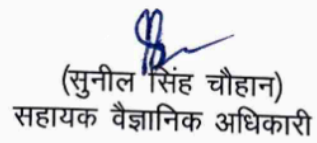 (सुनील सिंह चौहान)
सहायक वैज्ञानिक अधिकारी